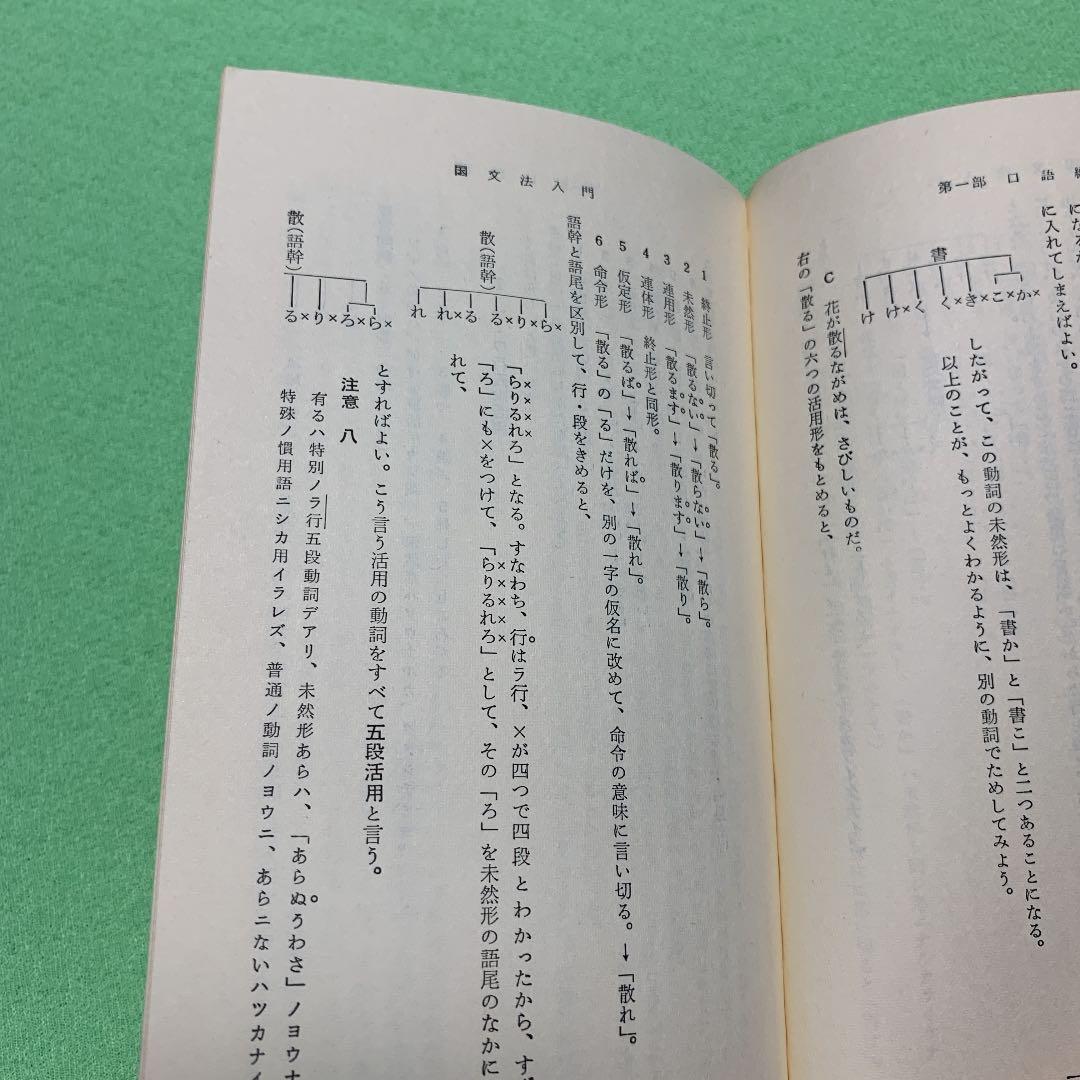 第一部 口語
になるが
に入れてしまえばよい。
書
か×
こ×
き×
く×
く
け×
け
したがって、この動詞の未然形は、「書か」と「書こ」と二つあることになる。
以上のことが、もっとよくわかるように、別の動詞でためしてみよう。
C 花が散るながめは、さびしいものだ。
右の「散る」の六つの活用形をもとめると、
国文法入門
1 終止形 言い切って「散る」。
2 未然形 「散るない」→「散らない」→「散ら」。
3 連用形 「散るます」→「散ります」→「散り」。
4 連体形 終止形と同形。
5 仮定形 「散るば」→「散れば」→「散れ」。
6 命令形 「散る」の「る」だけを、別の一字の仮名に改めて、命令の意味に言い切る。→「散れ」。
語幹と語尾を区別して、行・段をきめると、
散(語幹)
ら×
り×
る
る×
れ×
れ
「らりるれろ」となる。すなわち、行はラ行、×が四つで四段とわかったから、す
「ろ」にも×をつけて、「らりるれろ」として、その「ろ」を未然形の語尾のなかに
れて、
散(語幹)
ら×
ろ×
り×
る×
とすればよい。こう言う活用の動詞をすべて五段活用と言う。
注意 八
有るハ特別ノラ行五段動詞デアリ、未然形あらハ、「あらぬうわさ」ノヨウナ
特殊ノ慣用語ニシカ用イラレズ、普通ノ動詞ノヨウニ、あらニないハツカナイ